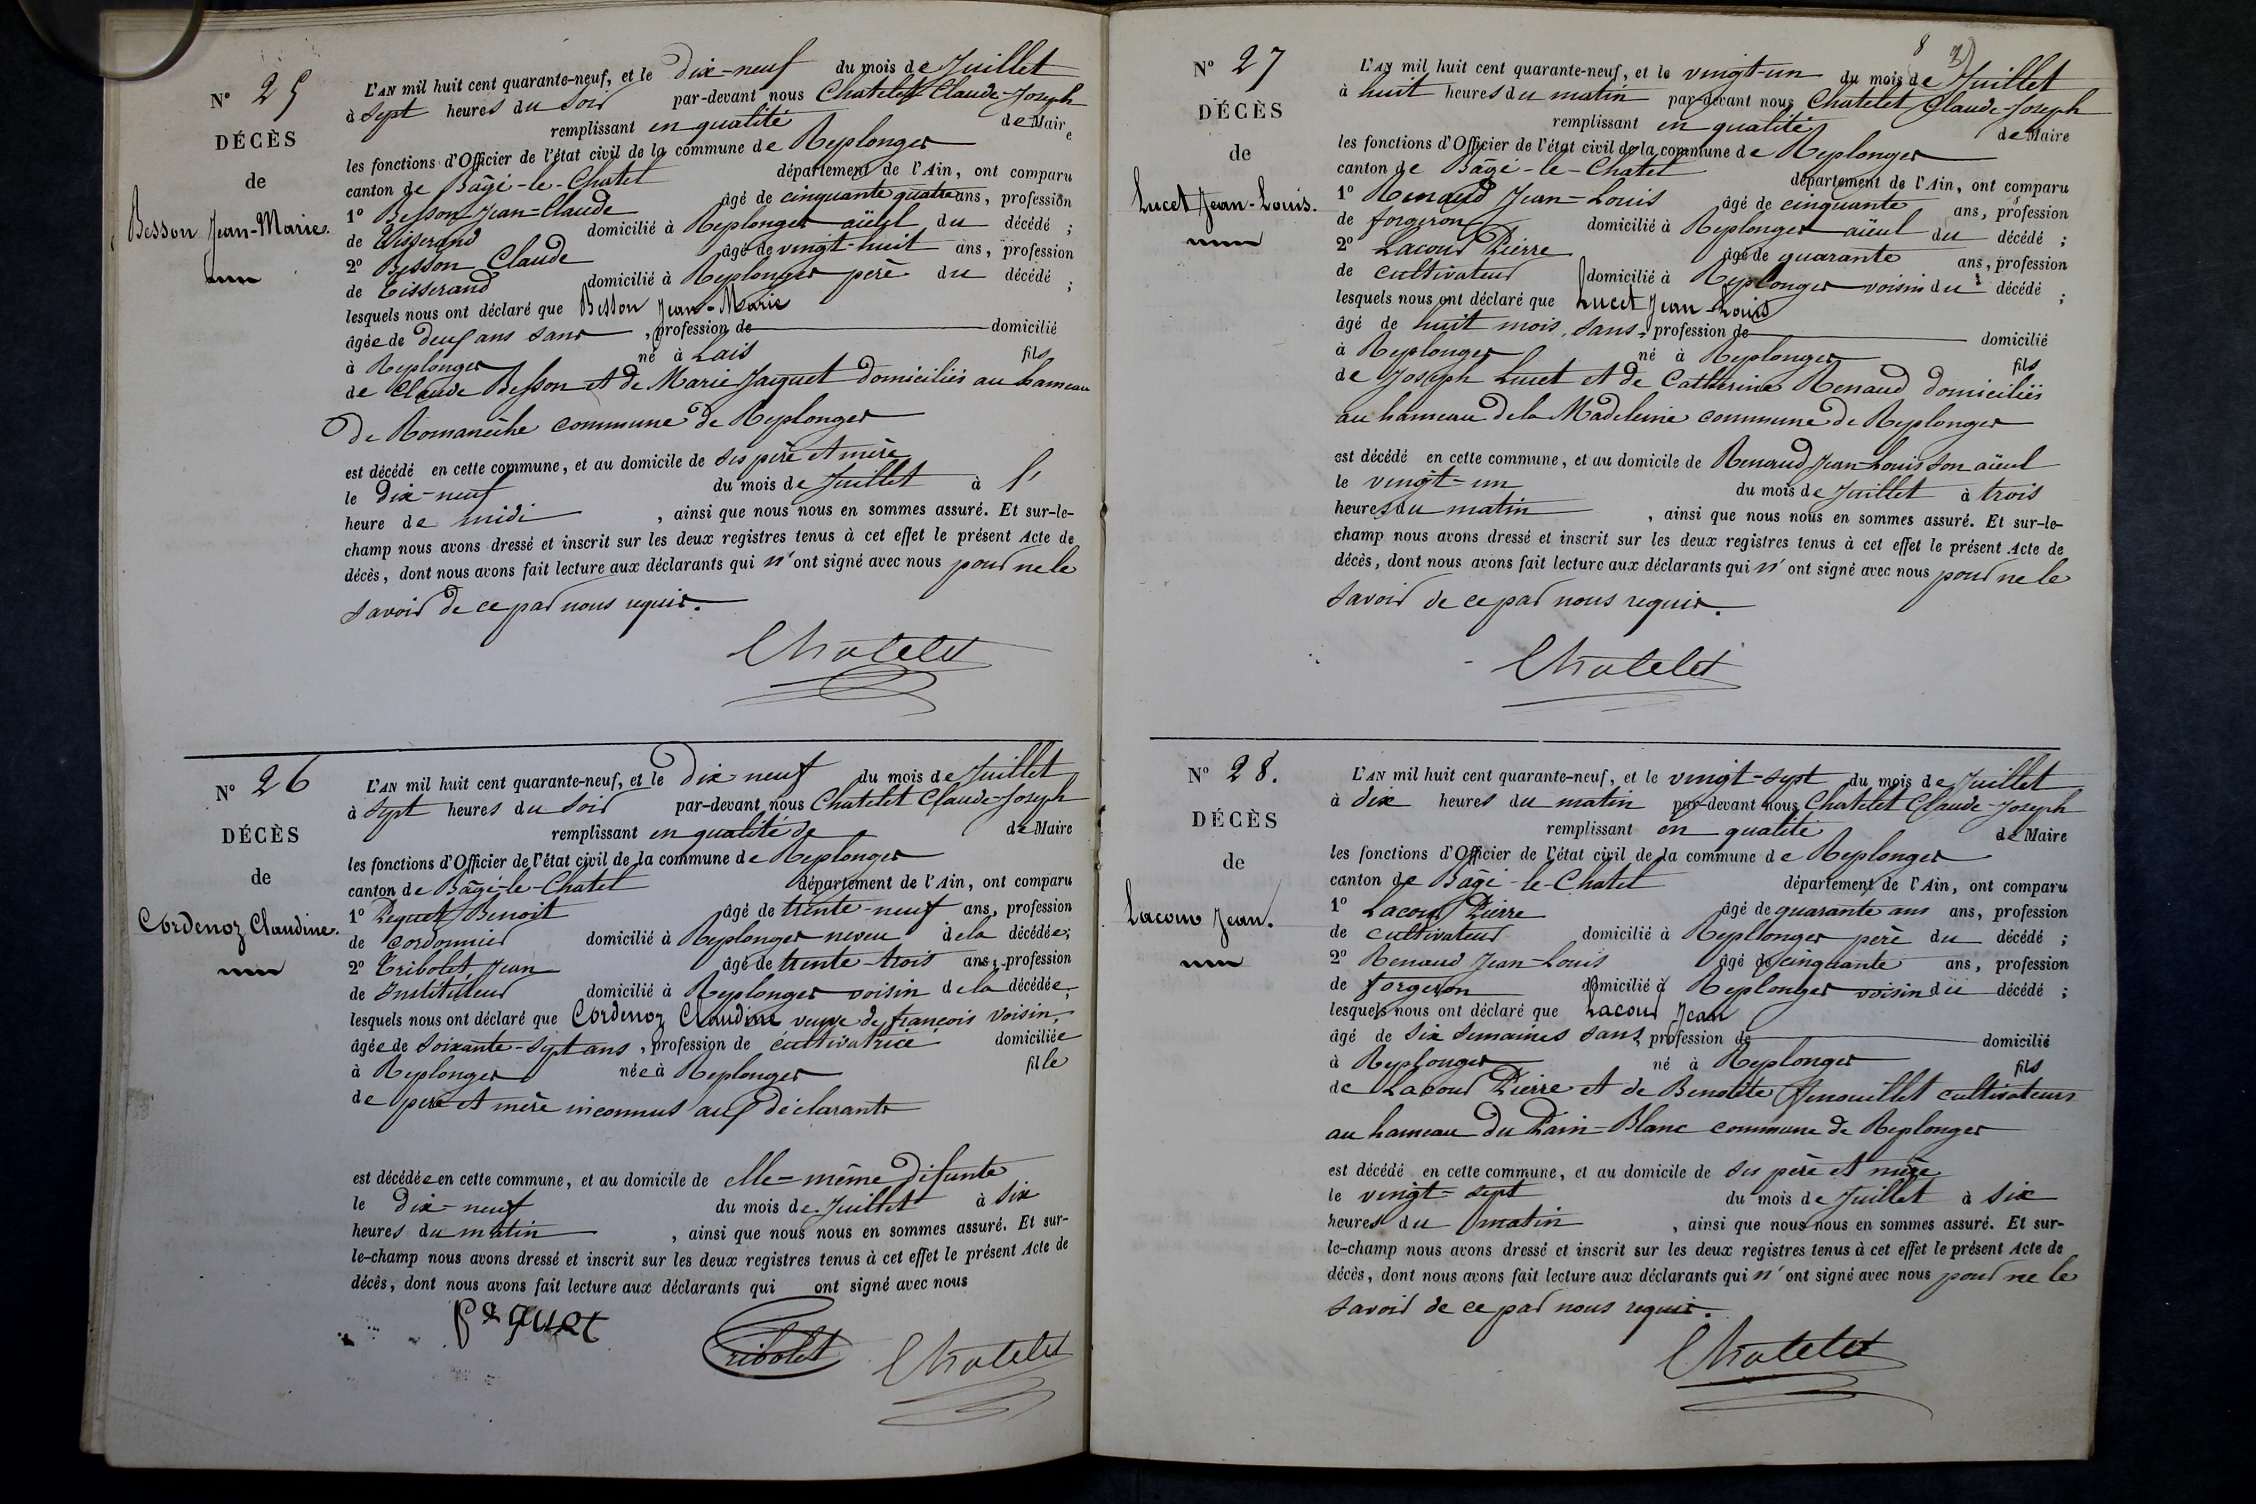 N° 25
DÉCÈS
de
Besson Jean-Marie.
L'AN mil huit cent quarante-neuf, et le dix-neuf du mois de Juillet
à sept heures du soir par-devant nous Chatelet Claude-Joseph
remplissant en qualité de Maire
les fonctions d'Officier de l'état civil de la commune de Replonger
canton de Bâgé-le-Chatel département de l'Ain, ont comparu
1° Besson Jean-Claude âgé de cinquante quatre ans, profession
de Tisserand domicilié à Replonger aïeul du décédé ;
2° Besson Claude âgé de vingt-huit ans, profession
de Tisserand domicilié à Replonger père du décédé ;
lesquels nous ont déclaré que Besson Jean-Marie
âgée de deux ans sans , profession de domicilié
à Replonger né à Lais fils
de Claude Besson et de Marie Jacquet domiciliés au hameau
de Romanèche commune de Replonger
est décédé en cette commune, et au domicile de ses père et mère
le dix-neuf du mois de Juillet à l'
heure de midi , ainsi que nous nous en sommes assuré. Et sur-le-
champ nous avons dressé et inscrit sur les deux registres tenus à cet effet le présent Acte de
décès, dont nous avons fait lecture aux déclarants qui n' ont signé avec nous pour ne le
savoir de ce par nous requis.
Chatelet
N° 26
DÉCÈS
de
Cordenoz Claudine.
L'AN mil huit cent quarante-neuf, et le dix-neuf du mois de Juillet
à sept heures du soir par-devant nous Chatelet Claude-Joseph
remplissant en qualité de de Maire
les fonctions d'Officier de l'état civil de la commune de Replonger
canton de Bâgé-le-Chatel département de l'Ain, ont comparu
1° Pequet Benoit âgé de trente-neuf ans, profession
de cordonnier domicilié à Replonger neveu de la décédée;
2° Tribolet Jean âgé de trente-trois ans, profession
de Instituteur domicilié à Replonger voisin de la décédée;
lesquels nous ont déclaré que Cordenoz Claudine veuve de françois Voisin,
âgée de soixante-sept ans , profession de cultivatrice domiciliée
à Replonger née à Replonger fille
de père et mère inconnus aux déclarants
est décédée en cette commune, et au domicile de elle-même défunte
le dix-neuf du mois de Juillet à six
heures du matin , ainsi que nous nous en sommes assuré. Et sur-
le-champ nous avons dressé et inscrit sur les deux registres tenus à cet effet le présent Acte de
décès, dont nous avons fait lecture aux déclarants qui ont signé avec nous
Pequet
Tribolet Chatelet
8
N° 27
DÉCÈS
de
Lucet Jean-Louis.
L'AN mil huit cent quarante-neuf, et le vingt-un du mois de Juillet
à huit heures du matin par-devant nous Chatelet Claude-Joseph
remplissant en qualité de Maire
les fonctions d'Officier de l'état civil de la commune de Replonger
canton de Bâgé-le-Chatel département de l'Ain, ont comparu
1° Renaud Jean-Louis âgé de cinquante ans, profession
de forgeron domicilié à Replonger aïeul du décédé ;
2° Lacour Pierre âgé de quarante ans, profession
de cultivateur domicilié à Replonger voisin du décédé ;
lesquels nous ont déclaré que Lucet Jean-Louis
âgé de huit mois, sans profession de domicilié
à Replonger né à Replonger fils
de Joseph Lucet et de Catherine Renaud domiciliés
au hameau de la Madeleine commune de Replonger
est décédé en cette commune, et au domicile de Renaud Jean-Louis son aïeul
le vingt-un du mois de Juillet à trois
heures du matin , ainsi que nous nous en sommes assuré. Et sur-le-
champ nous avons dressé et inscrit sur les deux registres tenus à cet effet le présent Acte de
décès, dont nous avons fait lecture aux déclarants qui n' ont signé avec nous pour ne le
savoir de ce par nous requis.
Chatelet
N° 28.
DÉCÈS
de
Lacour Jean.
L'AN mil huit cent quarante-neuf, et le vingt-sept du mois de Juillet
à dix heures du matin par-devant nous Chatelet Claude-Joseph
remplissant en qualité de Maire
les fonctions d'Officier de l'état civil de la commune de Replonger
canton de Bâgé-le-Chatel département de l'Ain, ont comparu
1° Lacour Pierre âgé de quarante ans ans, profession
de cultivateur domicilié à Replonger père du décédé ;
2° Renaud Jean-Louis âgé de cinquante ans, profession
de forgeron domicilié à Replonger voisin du décédé ;
lesquels nous ont déclaré que Lacour Jean
âgé de six semaines sans profession de domicilié
à Replonger né à Replonger fils
de Lacour Pierre et de Benoite Fenouillet cultivateurs
au hameau du Pain-Blanc commune de Replonger
est décédé en cette commune, et au domicile de ses père et mère
le vingt-sept du mois de Juillet à six
heures du matin , ainsi que nous nous en sommes assuré. Et sur-
le-champ nous avons dressé et inscrit sur les deux registres tenus à cet effet le présent Acte de
décès, dont nous avons fait lecture aux déclarants qui n' ont signé avec nous pour ne le
savoir de ce par nous requis.
Chatelet